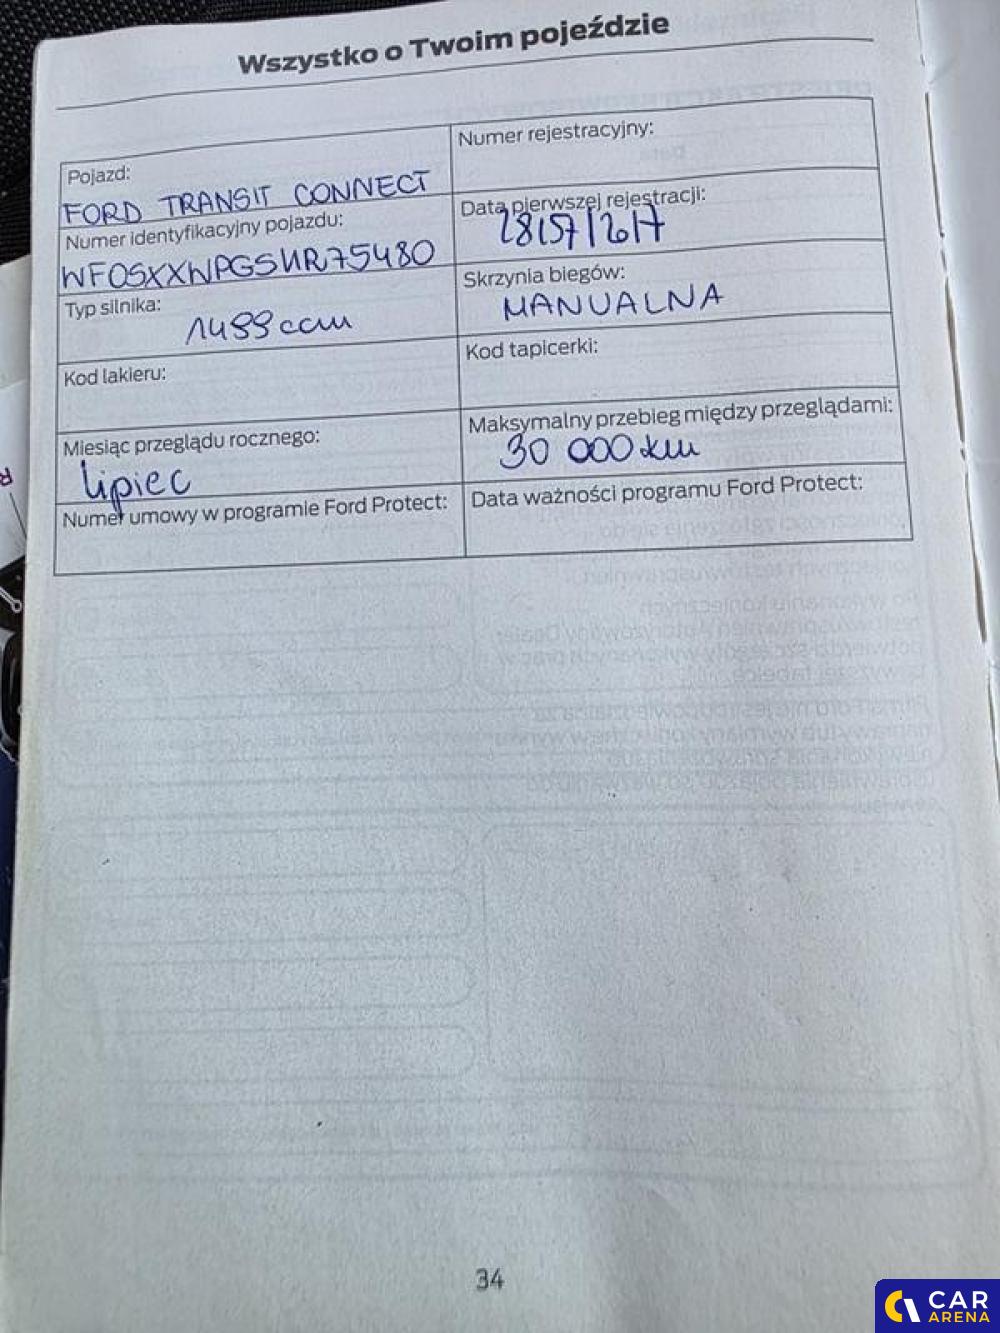 Wszystko o Twoim pojeździe
Pojazd:
FORD TRANSIT CONNECT
Numer rejestracyjny:
Numer identyfikacyjny pojazdu:
WF0SXXWPGSHR75480
Data pierwszej rejestracji:
Typ silnika:
1499 ccm
Skrzynia biegów:
MANUALNA
Kod lakieru:
Kod tapicerki:
Miesiąc przeglądu rocznego:
lipiec
Maksymalny przebieg między przeglądami:
30 000 km
Numer umowy w programie Ford Protect:
Data ważności programu Ford Protect:
34
CAR
ARENA